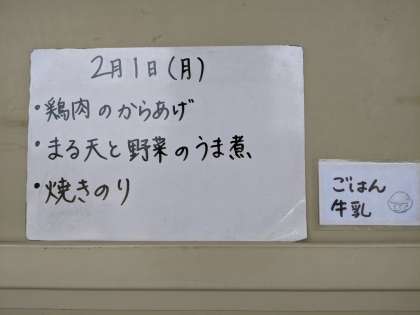 2月1日(月)
・鶏肉のからあげ
・まる天と野菜のうま煮
・焼きのり
ごはん
牛乳